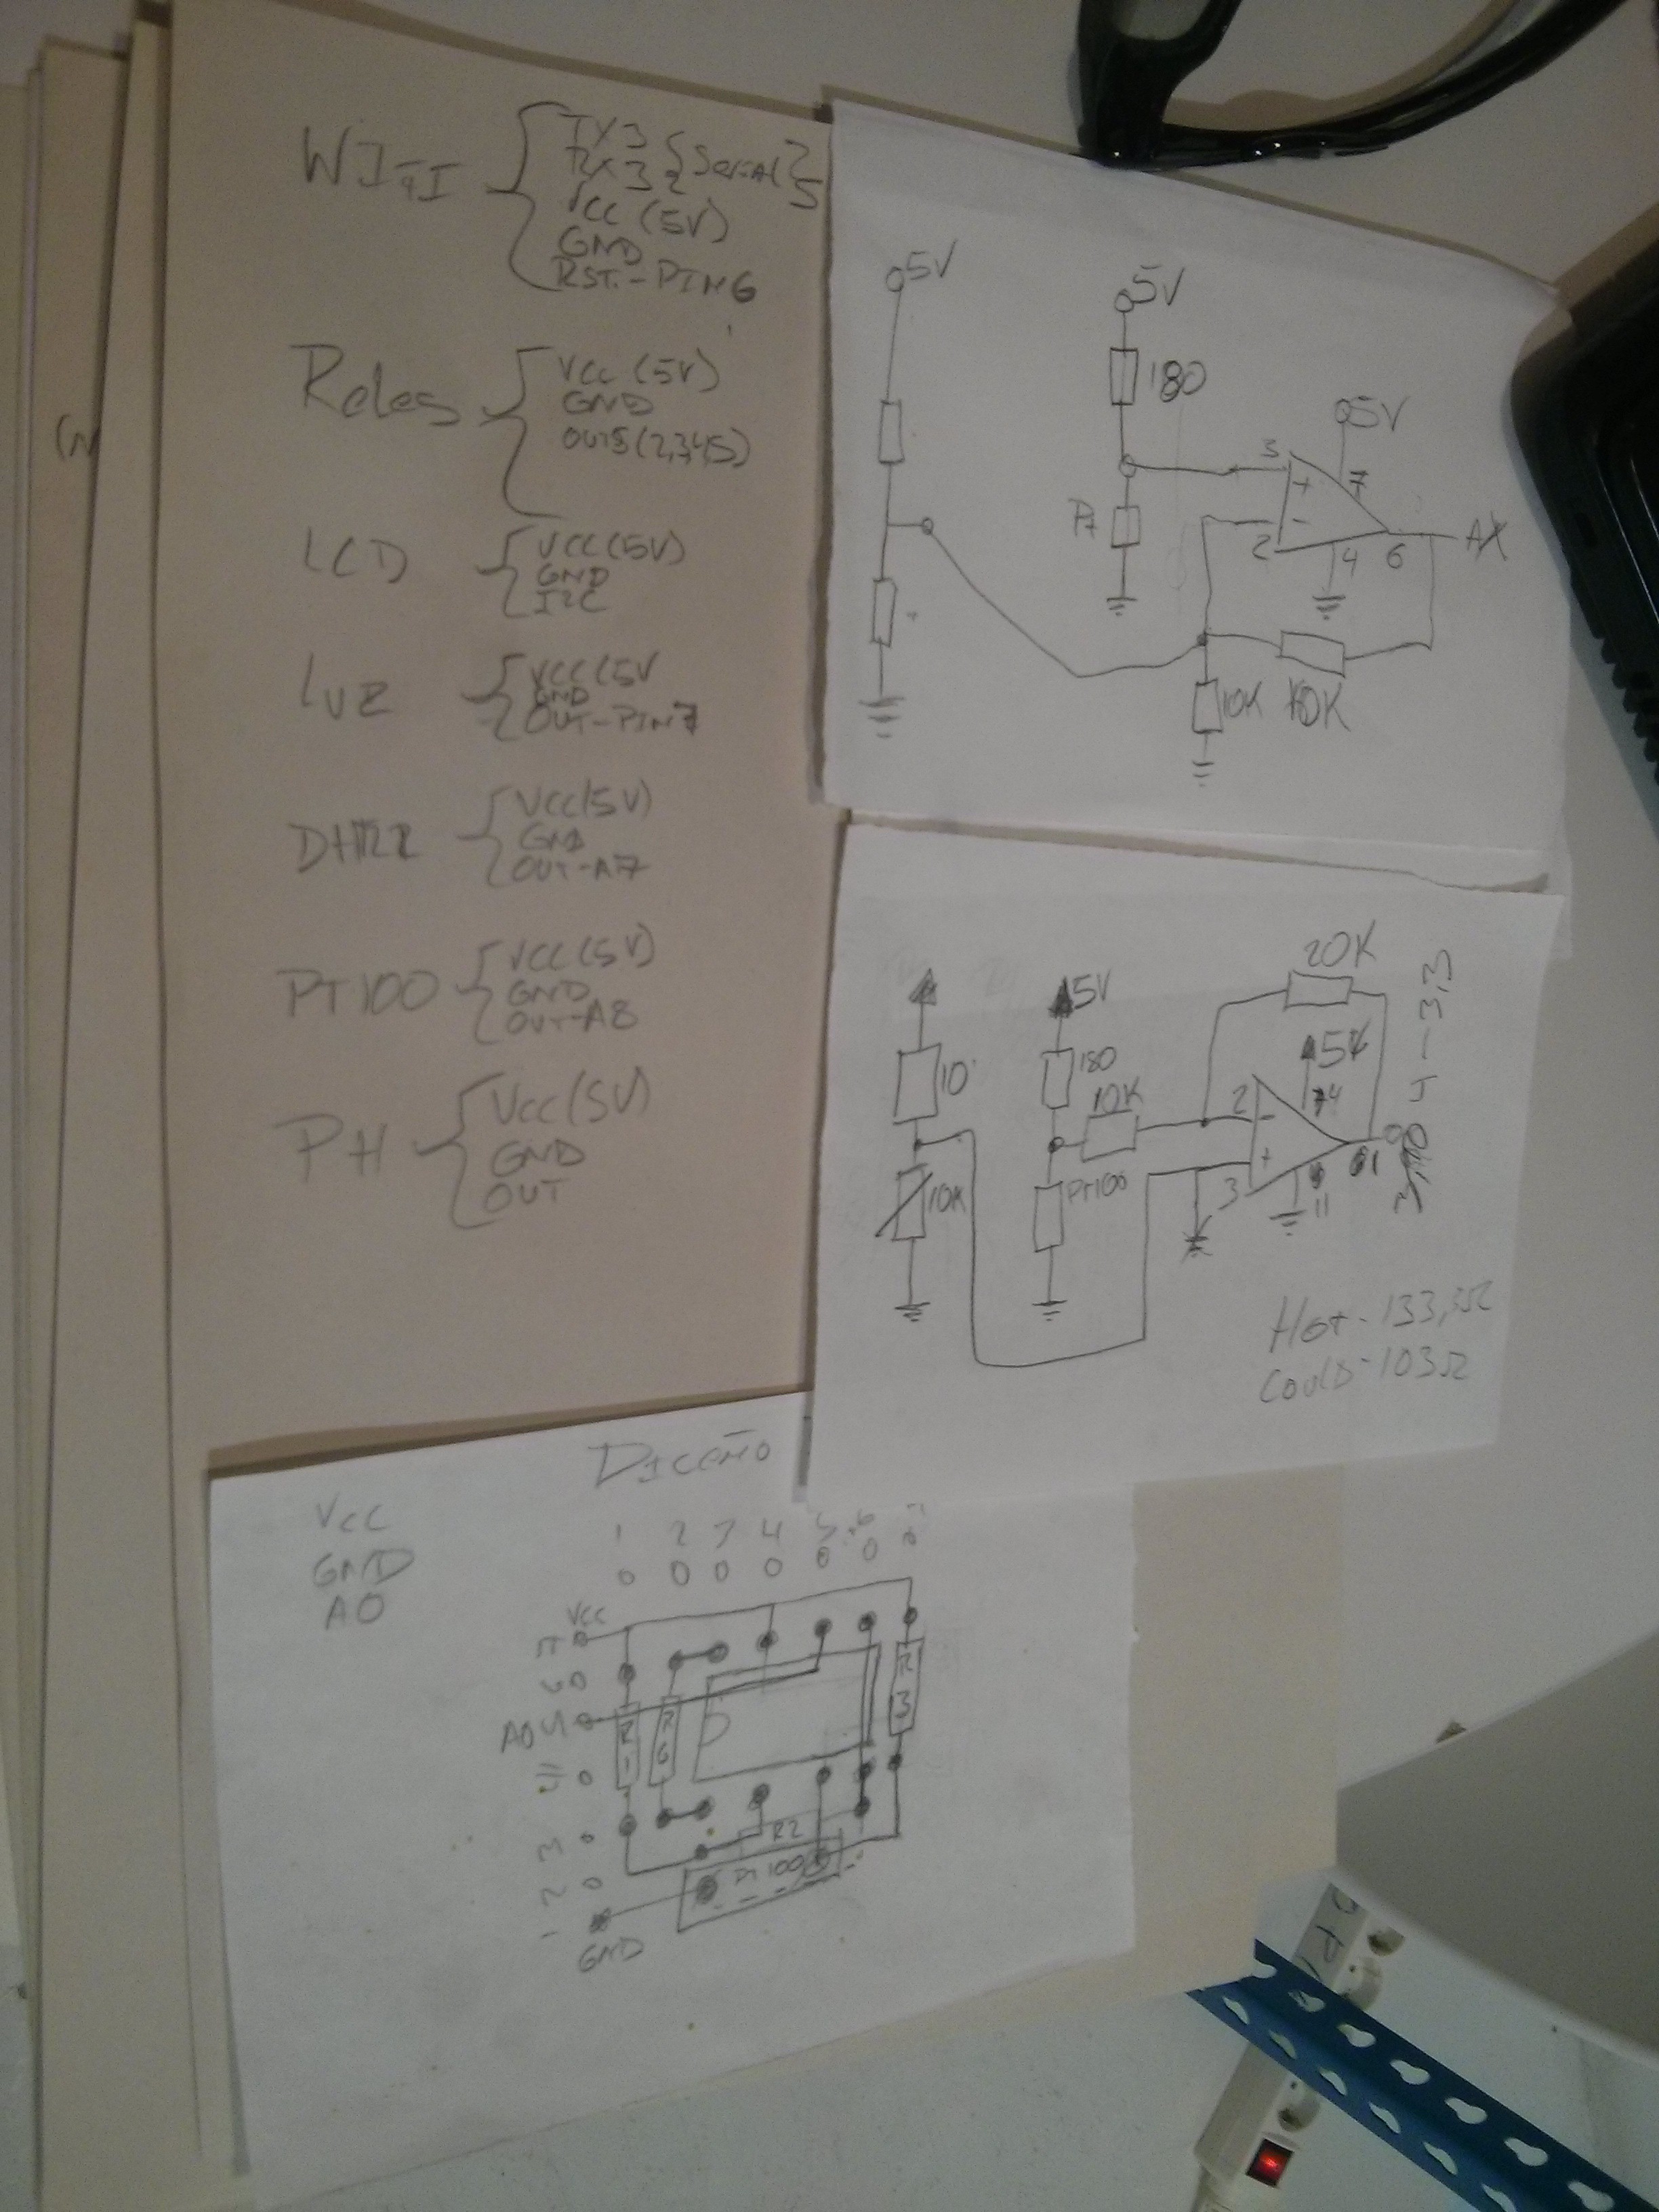 WIFI
TX3
RX3
Serial
VCC (5V)
GND
RST.-PIN6
Reles
VCC (5V)
GND
OUTS(2,3,4,5)
LCD
VCC(5V)
GND
I2C
LUZ
VCC(5V
GND
OUT-PIN7
DHT22
VCC(5V)
GND
OUT-A7
PT100
VCC(5V)
GND
OUT-A8
PH
VCC(5V)
GND
OUT
5V
5V
180
5V
3
+
7
Pt
-
2
4
6
10K
10K
20K
5V
180
10
10K
2
-
4
+
3
11
1
PT100
10K
1-3,3
Hot-133,3Ω
Could-103Ω
Diceño
VCC
GND
A0
1 2 3 4 5 6 7
VCC
7
6
A0 5
4
3
2
1
R1
R6
R3
R2
Pt100
GND